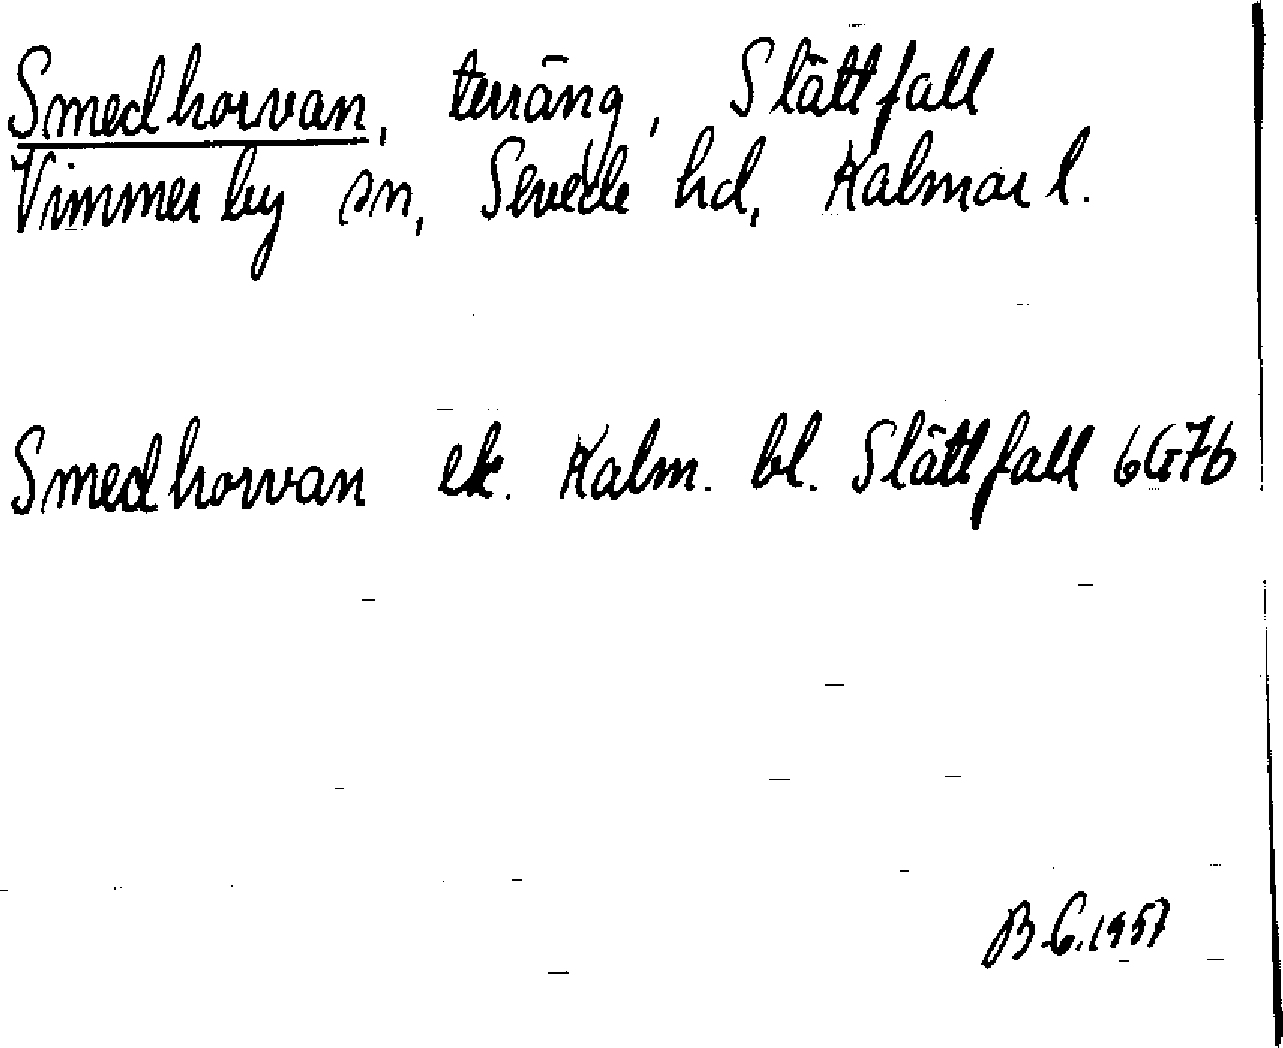 Smedhorvan, terräng, Slättfall
Vimmerby sn, Sevede hd, Kalmar l.
Smedhorvan ek. Kalm. bl. Slättfall 6G7b
B.G. 1957